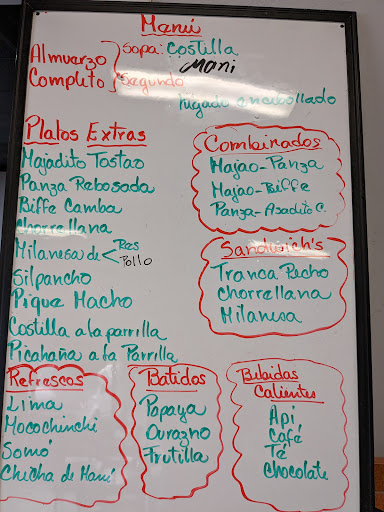 Menú
Almuerzo Completo
Sopa: Costilla
Mani
Segundo
higado encebollado
Platos Extras
Majadito Tostao
Panza Rebosada
Biffe Camba
Chorrellana
Milanesa de Res
Pollo
Silpancho
Pique Macho
Costilla a la parrilla
Picahaña a la Parrilla
Combinados
Majao-Panza
Majao-Biffe
Panza-Asadito C.
Sandwich's
Tranca Pecho
Chorrellana
Milanesa
Refrescos
Lima
Mocochinchi
Somó
Chicha de Maní
Batidos
Papaya
Durazno
Frutilla
Bebidas Calientes
Api
Café
Té
Chocolate